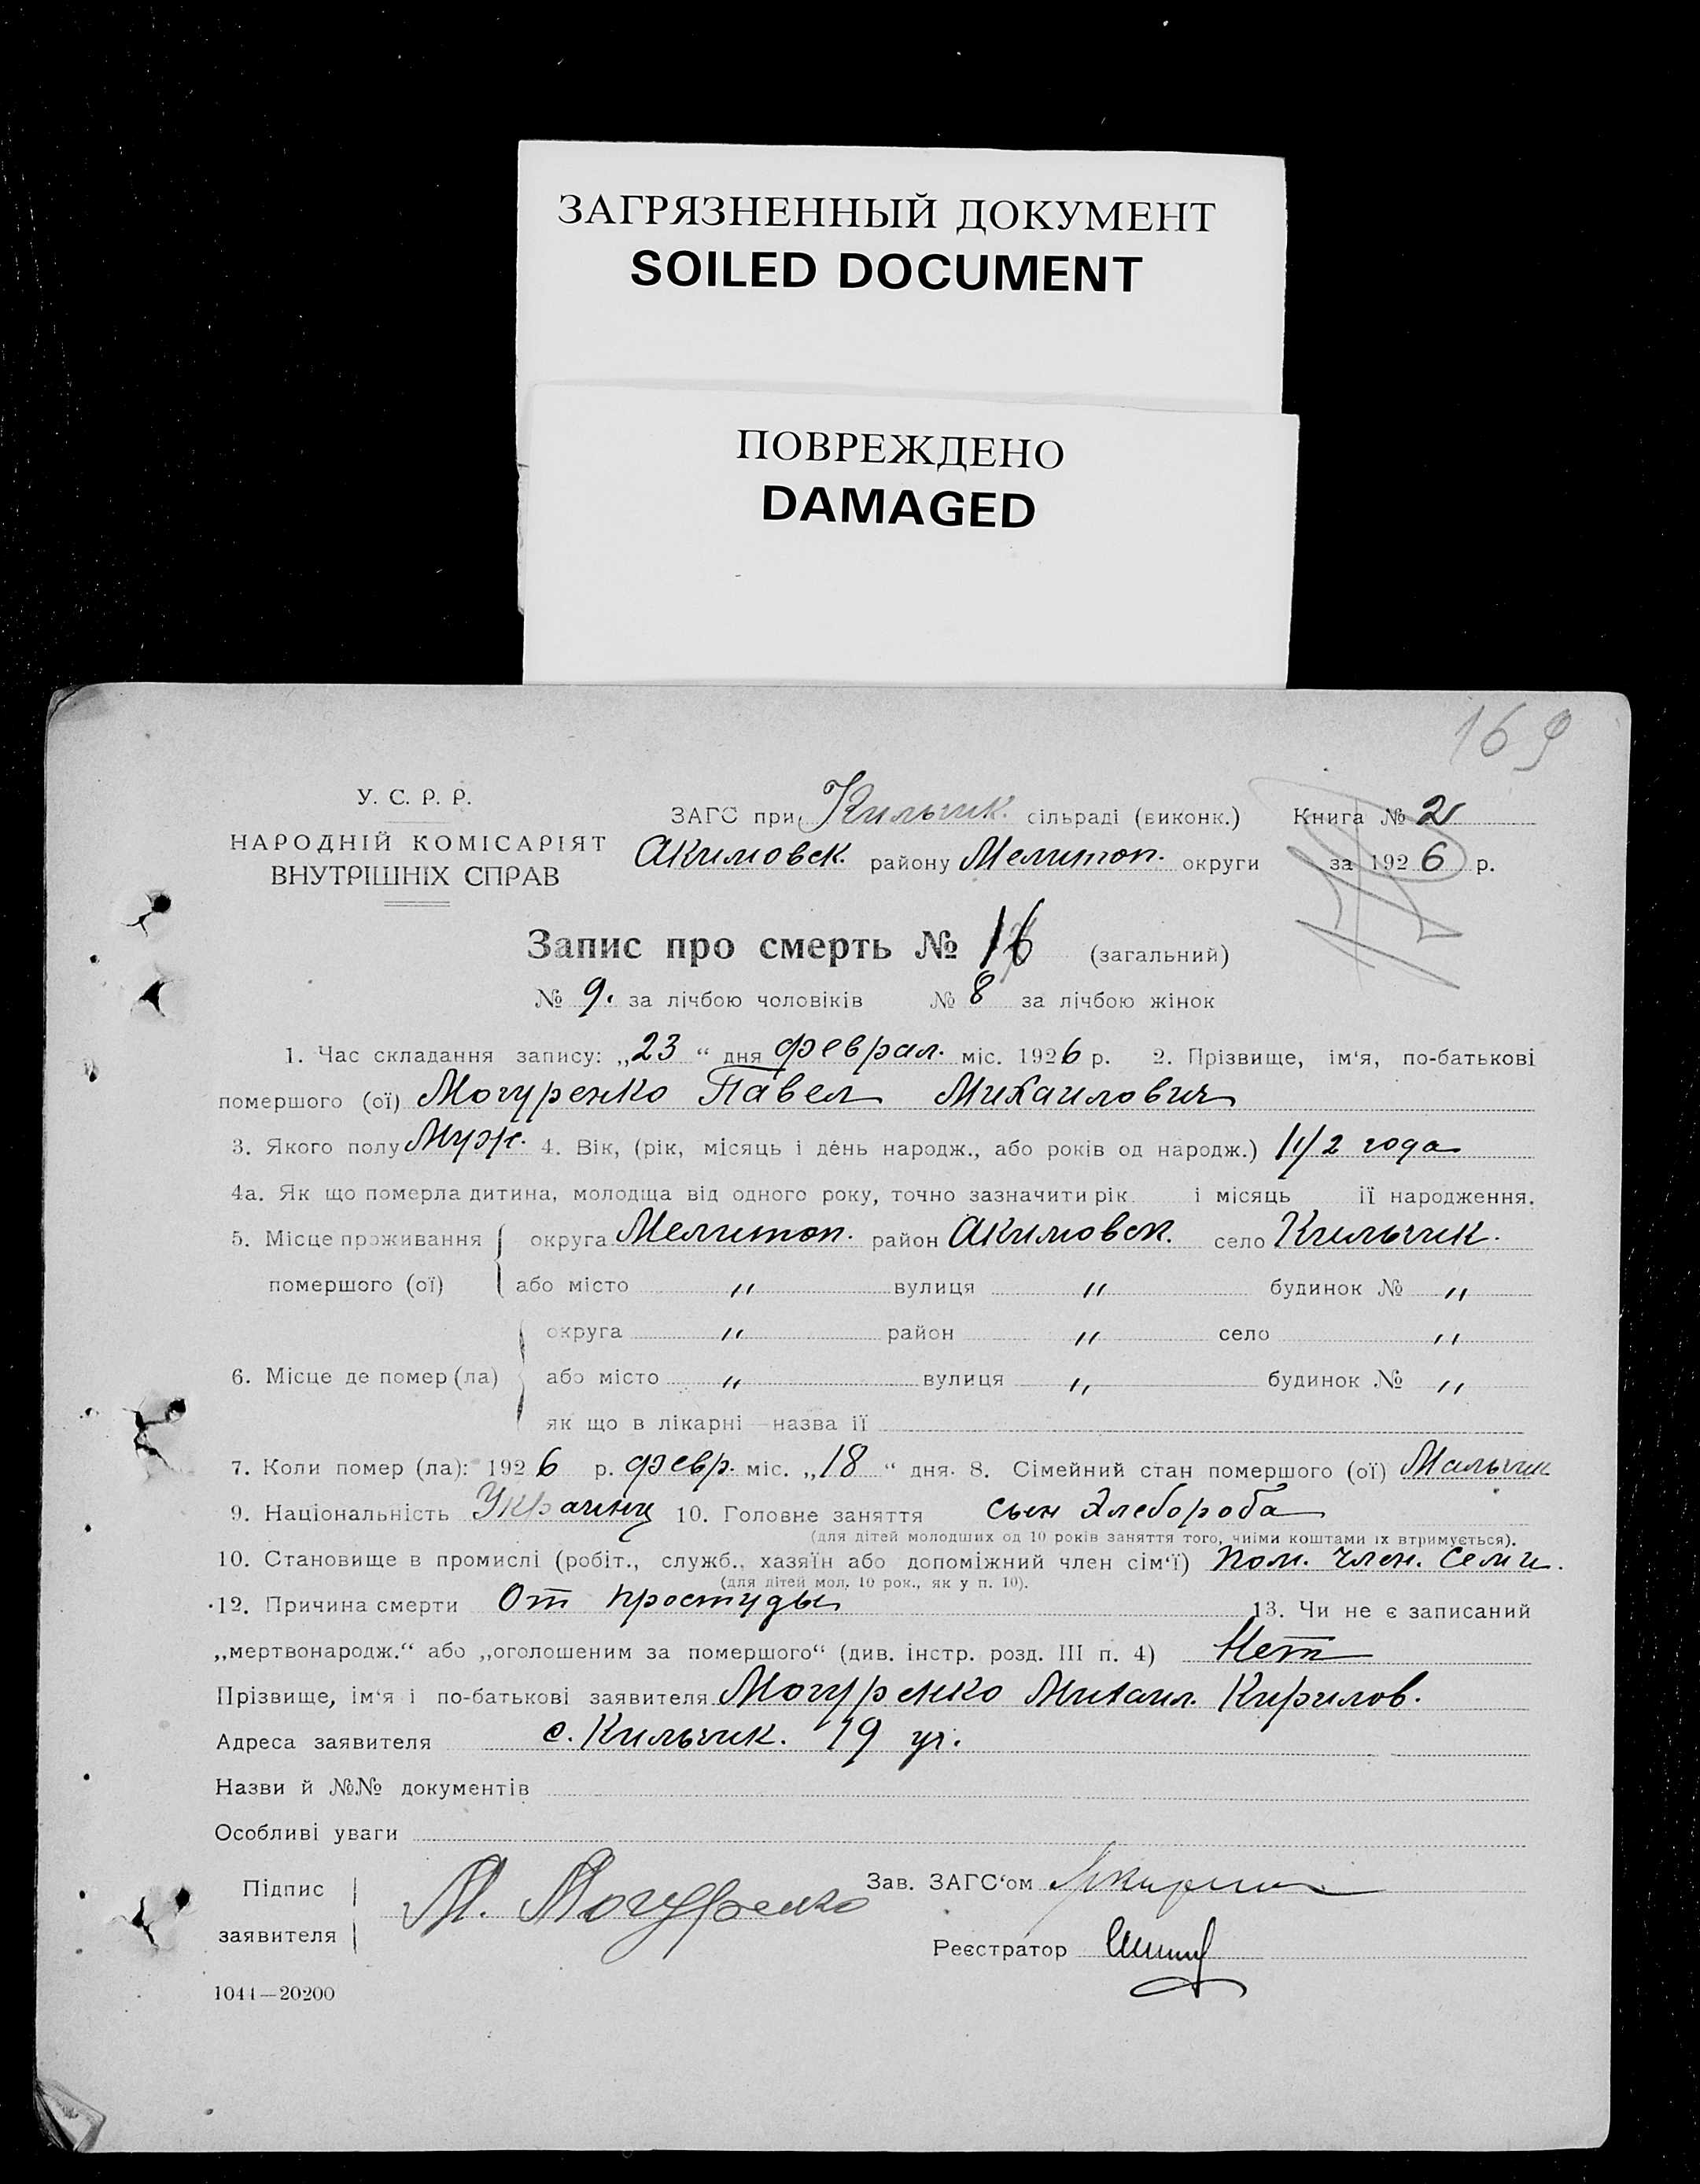 ЗАГРЯЗНЕННЫЙ ДОКУМЕНТ
SOILED DOCUMENT
ПОВРЕЖДЕНО
DAMAGED
169
У. С. Р. Р.
НАРОДНІЙ КОМІСАРІЯТ
ВНУТРІШНІХ СПРАВ
ЗАГС при Кильчик. сільраді (виконк.) Книга № 2
Акимовск. району Мелитоп. округи за 1926 р.
Запис про смерть № 16 (загальний)
№ 9. за лічбою чоловіків № 8 за лічбою жінок
1. Час складання запису: „23“ дня феврал. міс. 1926 р. 2. Прізвище, ім‘я, по-батькові
помершого (ої) Могуренко Павел Михаилович
3. Якого полу Муж. 4. Вік, (рік, місяць і день народж., або років од народж.) 1 1/2 года
4а. Як що померла дитина, молодща від одного року, точно зазначити рік і місяць її народження.
5. Місце проживання округа Мелитоп. район Акимовск. село Кильчик.
помершого (ої) або місто " вулиця " будинок № "
округа " район " село "
6. Місце де помер (ла) або місто " вулиця " будинок № "
як що в лікарні — назва її
7. Коли помер (ла): 1926 р. февр. міс. „18“ дня. 8. Сімейний стан помершого (ої) Мальчик
9. Національність Украинц 10. Головне заняття сын Хлебороба
(для дітей молодших од 10 років заняття того, чиїми коштами їх втримується).
10. Становище в промислі (робіт., служб., хазяїн або допоміжний член сім‘ї) Пом. член. семи.
(для дітей мол. 10 рок., як у п. 10).
12. Причина смерти От простуды 13. Чи не є записаний
„мертвонародж.“ або „оголошеним за помершого“ (див. інстр. розд. III п. 4) Нет
Прізвище, ім‘я і по-батькові заявителя Могуренко Михаил. Кирилов.
Адреса заявителя с. Кильчик. 19 уч.
Назви й №№ документів
Особливі уваги
Підпис М. Могуренко Зав. ЗАГС‘ом
заявителя
Реєстратор
1044—20200